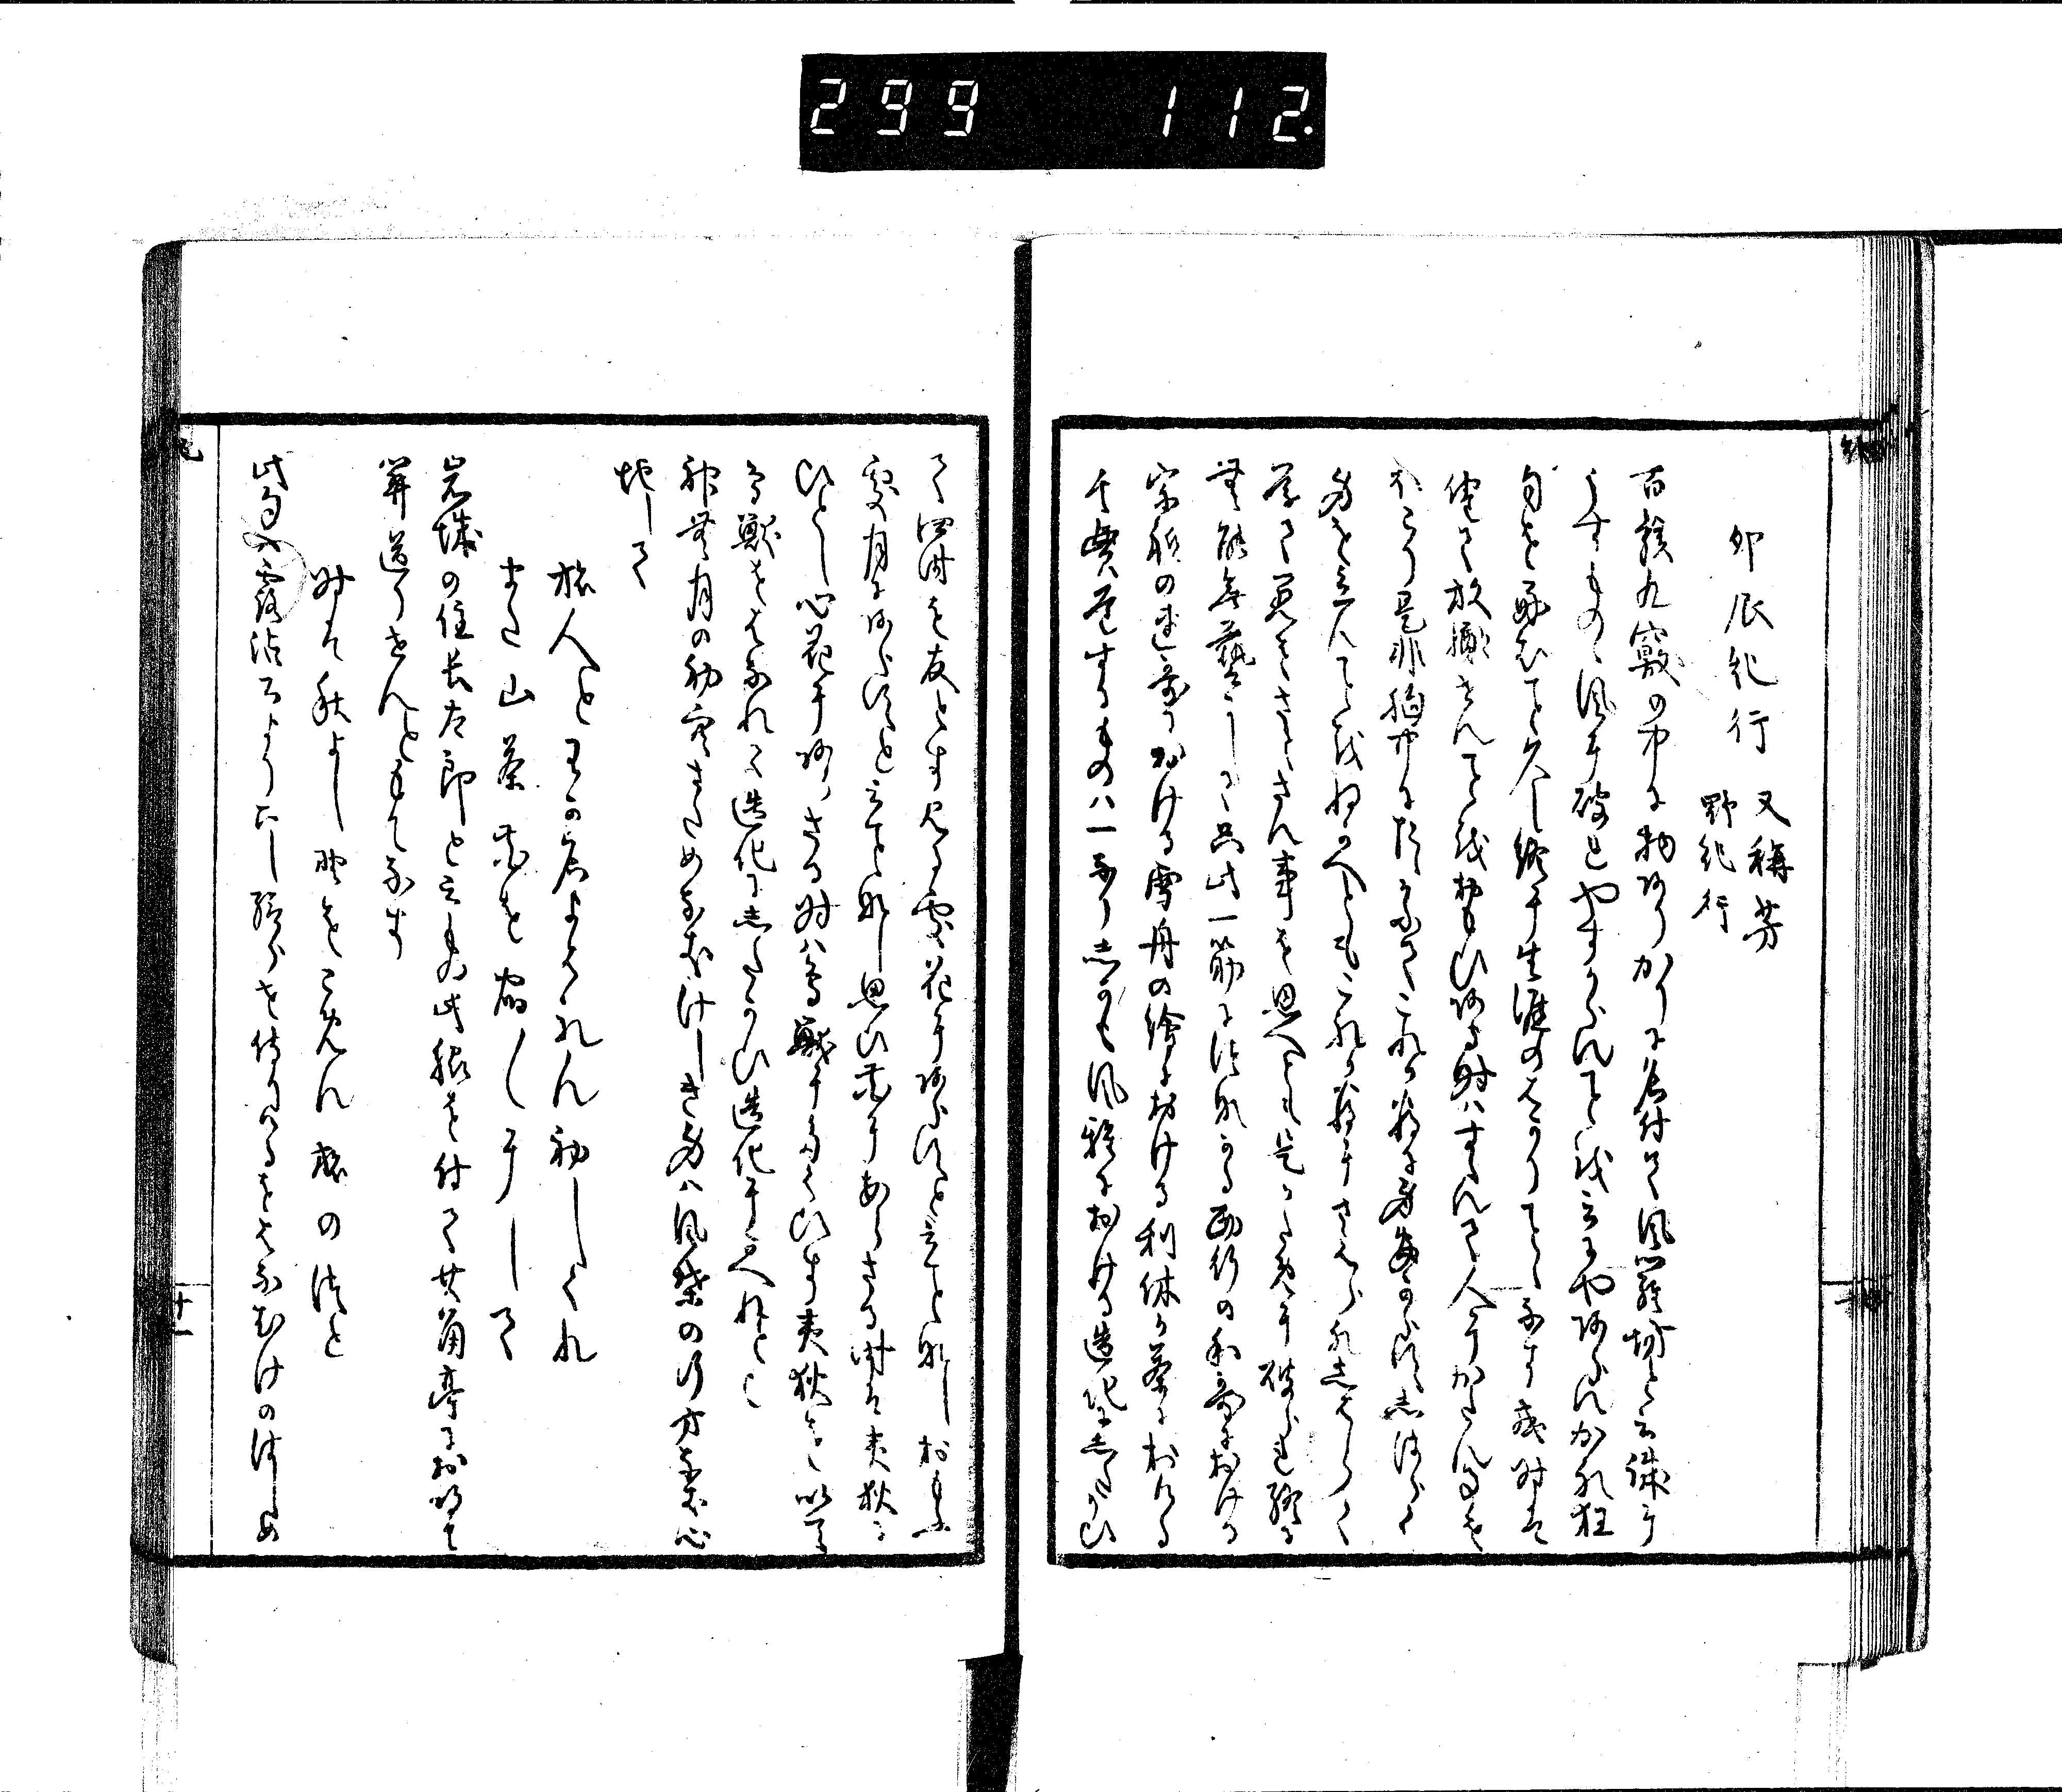 299 112.
卯辰紀行 又稱芳
野紀行
百骸九竅の中に物ありかりに名付て風羅坊と云誠に
うすものゝ風に破れやすからんことを云にやあらんかれ狂
句を好むこと久し終に生涯のはかりことゝなす或時は
倦て放擲せんことをおもひある時はすゝんて人にかたん事を
ほこり是非胸中にたゝかふてこれか為に身安からすしはらく
身を立んことをねかへともこれか為にさへられしはらく
学て愚をさとさん事を思へとも是かために破られ終に
無能無藝にして只此一筋に繋かる西行の和哥における
宗祇の連哥における雪舟の繪における利休か茶における
其貫道するものハ一なりしかも風雅における造化にしたかひ
て四時を友とす見る處花にあらすといふことなしおもふ
處月にあらすといふことなし思ひ花にあらさる時は夷狄に
ひとし心花にあらさる時ハ鳥獣にたくひす夷狄を出て
鳥獣をはなれて造化にしたかひ造化にかへれとこ
神無月の初空さためなきけしき身ハ風葉の行方なき心
地して
旅人とわか名よはれん初しくれ
また山茶花を宿〱にして
岩城の住長太郎と云もの此脇を付て其角亭におゐて
関送りせんともてなす
時は秋よし野をこめん旅のつと
此句ハ露沾公より下し給らせ侍りけるをはなむけの初め
十一